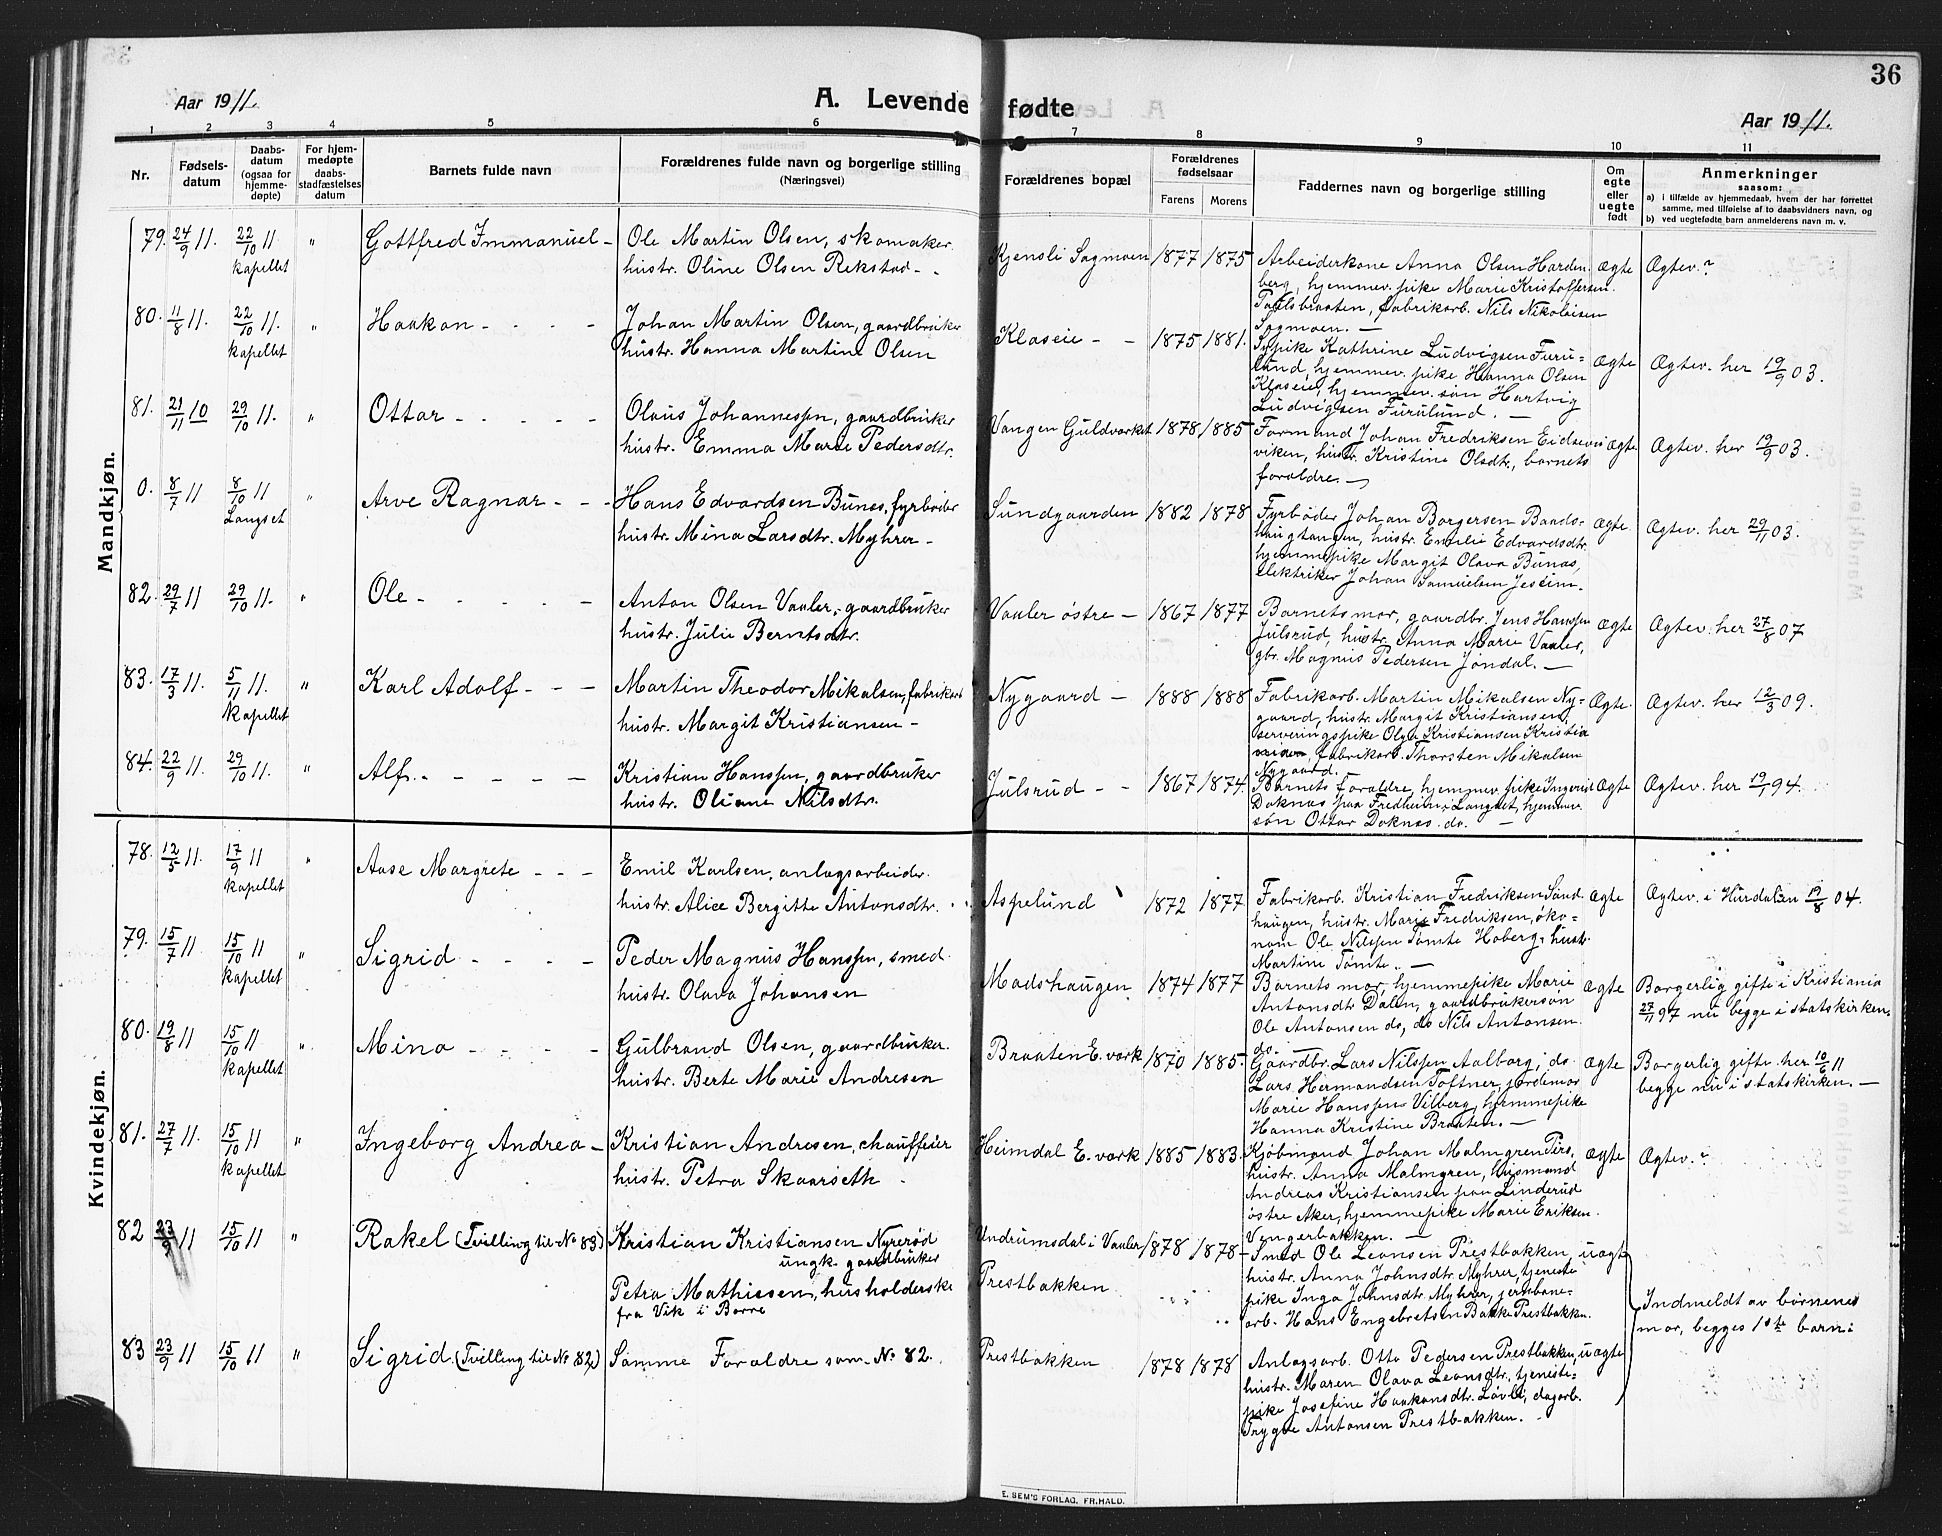 36
Aar 1911.
A. Levende fødte
Aar 1911.
1 2 3 4 5 6 7 8 9 10 11
Nr.
Fødsels-
datum
Daabs-
datum
(ogsaa for
hjemme-
døpte)
For hjem-
medøpte
daabs-
stadfæstelses
datum
Barnets fulde navn
Forældrenes fulde navn og borgerlige stilling
(Næringsvei)
Forældrenes bopæl
Forældrenes
fødselsaar
Farens Morens
Faddernes navn og borgerlige stilling
Om
egte
eller
uegte
født
Anmerkninger
saasom:
a) i tilfælde av hjemmedaab, hvem der har forrettet
samme, med tilføielse af to daabsvidners navn, og
b) ved uegtefødte barn anmelderens navn m. v.
Mandkjøn.
79. 24/9 11. 22/10 11 " Gottfred Immanuel - Ole Martin Olsen, skomaker
kapellet hustr. Oline Olsen Rekstad - -
Kjensli Sagmoen 1877 1875 Arbeiderkone Anna Olsen Harden-
berg, hjemmev. pike Marie Kristoffersen
Taalsbraaten, fabrikarb. Nils Nikolaisen
Sagmoen. —
Ægte Ægtev.?
80. 11/8 11. 22/10 11. " Haakon - - - - Johan Martin Olsen, gaardbruker
kapellet hustr. Hanna Martine Olsen
Klaseie - - 1875 1881. Sypike Kathrine Ludvigsen Furu=
lund, hjemmev. pike Hanna Olsen
Klaseie, hjemmev. søn Hartvig
Ludvigsen Furulund. —
Ægte Ægtev. her 19/9 03.
81. 21/11 10 29/10 11. " Ottar - - - - - Olaus Johannessen, gaardbruker
hustr. Emma Marie Pedersdtr.
Vangen Guldverket 1878 1885 Formand Johan Fredriksen Eidsvi
viken, hustr. Kristine Olsdtr., barnets
forældre. —
Ægte Ægtev. her 19/9 03.
0. 8/7 11 8/10 11 " Arve Ragnar - - - Hans Edvardsen Bunes, fyrbøder
Langset hustr. Mina Larsdtr. Myhrer -
Sundgaarden 1882 1878 Fyrbøder Johan Borgersen Baads-
haugtangen, hustr. Emilie Edvardsdtr.
hjemmepike Margit Olava Bunes,
elektriker Johan Samuelsen Jessim.
Ægte Ægtev. her 29/11 03.
82. 29/7 11 29/10 11. " Ole - - - - - Anton Olsen Vaaler, gaardbruker
hustr. Julie Berntsdtr.
Vaaler østre - 1867 1877 Barnets mor, gaardbr. Jens Hanssen
Julsrud, hustr. Anna Marie Vaaler,
gbr. Magnus Pedersen Jøndal. —
Ægte Ægtev. her 27/8 07
83. 17/3 11. 5/11 11. " Karl Adolf - - - Martin Theodor Mikalsen, fabrikarb
kapellet hustr. Margit Kristiansen -
Nygaard - 1888 1888 Fabrikarb. Martin Mikalsen Ny-
gaard, hustr. Margit Kristiansen,
serveringspike Olga Kristiansen Kristia
fabrikarb. Thorsten Mikalsen
Nygaard.
Ægte. Ægtev. her 12/3 09.
84. 22/9 11. 29/10 11. " Alf. - - - - - Kristian Hanssen, gaardbruker
hustr. Oliane Nilsdtr.
Julsrud - - 1867 1874. Barnets forældre, hjemmev. pike Ingerid
Doknæs paa Fredheim, Langset, hjemmev.
søn Ottar Doknæs. do. —
Ægte Ægtev. her 19/1 94.
Kvindekjøn.
78. 12/5 11. 17/9 11 " Aase Margrete - - - Emil Karlsen, anlægsarbeider.
kapellet hustr. Alice Bergitte Antonsdtr. . .
Aspelund 1872 1877 Fabrikarb. Kristian Fredriksen Sand
haugen, hustr. Marie Fredriksen, øko-
nom Ole Nilssen Tømte Hoberg, hustr.
Martine Tømte. —
Ægte Ægtev. i Hurdalen 19/8 04.
79. 15/7 11 15/10 11 " Sigrid - - - - Peder Magnus Hanssen, smed
kapellet hustr. Olava Johansen
Madshaugen 1874 1877 Barnets mor, hjemmepike Marie
Antonsdtr Dalen, gaardbrukersøn
Ole Antonsen do, do Nils Antonsen
do.
Ægte Borgerlig gifte i Kristiania
27/11 97 nu begge i statskirken.
80. 19/8 11 15/10 11 " Mina - - - - Gulbrand Olsen, gaardbruker.
kapellet hustr. Berte Marie Andresen
Braaten E. værk 1870 1885. Gaardbr. Lars Nilssen Aalborg, do
Lars Hermandsen Toftner, jordemor
Marie Hanssen Vilberg, hjemmepike
Hanna Kristine Braaten. —
Ægte Borgerlig gifte her 10/6 11
begge nu i statskirken. —
81. 27/7 11. 15/10 11 " Ingeborg Andrea - Kristian Andresen, chauffeier
kapellet hustr. Petra Skaarseth
Heimdal E. værk 1885 1883. Kjøbmand Johan Malmgren Pirs,
hustr. Anna Malmgren, husmand
Andreas Kristiansen paa Linderud
østre Aker, hjemmepike Marie Eriksen
Vengerbakken. —
Ægte Ægtev.?
82 23/9 11 15/10 11 " Rakel (Tvilling til No 83) Kristian Kristiansen Nyrerød
ungk. gaardbruker
Petra Mathiesen, husholderske
fra Vik i Borre
Undrumsdal i Vaaler 1878 1878
Prestbakken
Smed Ole Leonsen Prestbakken,
hustr. Anna Johnsdtr. Myhrer, tjeneste
pike Inga Johnsdtr. Myhrer, jernbane-
arb. Hans Engebretsen Bakke Prestbakken.
uægte
Indmeldt av børnenes
mor, begges 1ste barn:
83 23/9 11 15/10 11 " Sigrid (Tvilling til No 82) Samme Forældre som No 82.
Prestbakken 1878 1878 Anlægsarb. Otto Pedersen Prestbakken,
hustr. Maren Olava Leonsdtr, tjeneste-
pike Josefine Haakonsdtr. Løvli, dagarb.
Trygve Antonsen Prestbakken.
uægte
E. SEM'S FORLAG, FR.HALD.